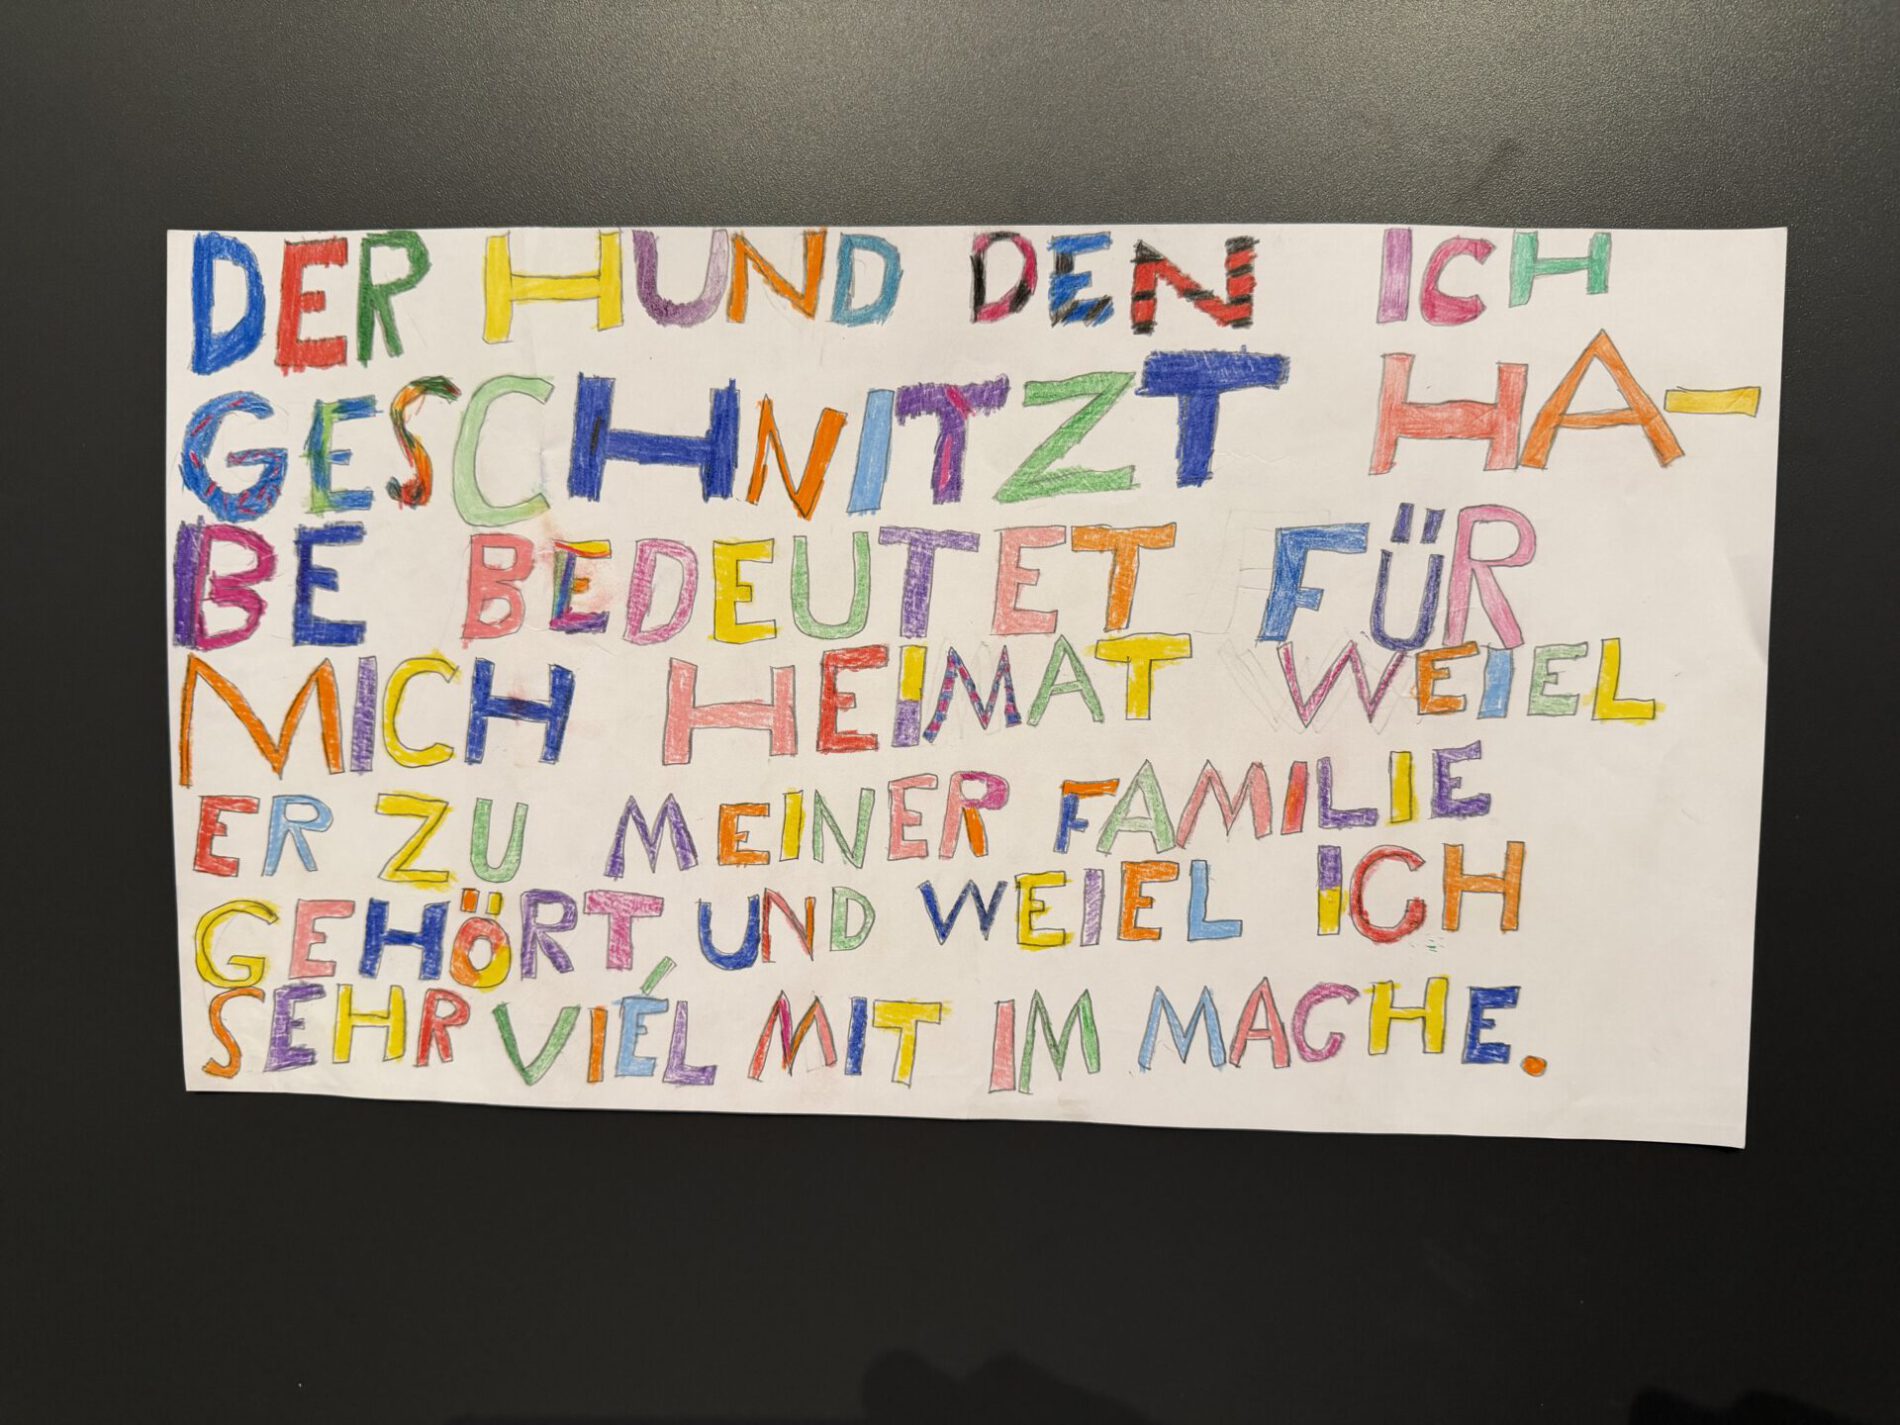 DER HUND DEN ICH
GESCHNITZT HA-
BE BEDEUTET FÜR
MICH HEIMAT WEIEL
ER ZU MEINER FAMILIE
GEHÖRT UND WEIEL ICH
SEHR VIÉL MIT IM MACHE.